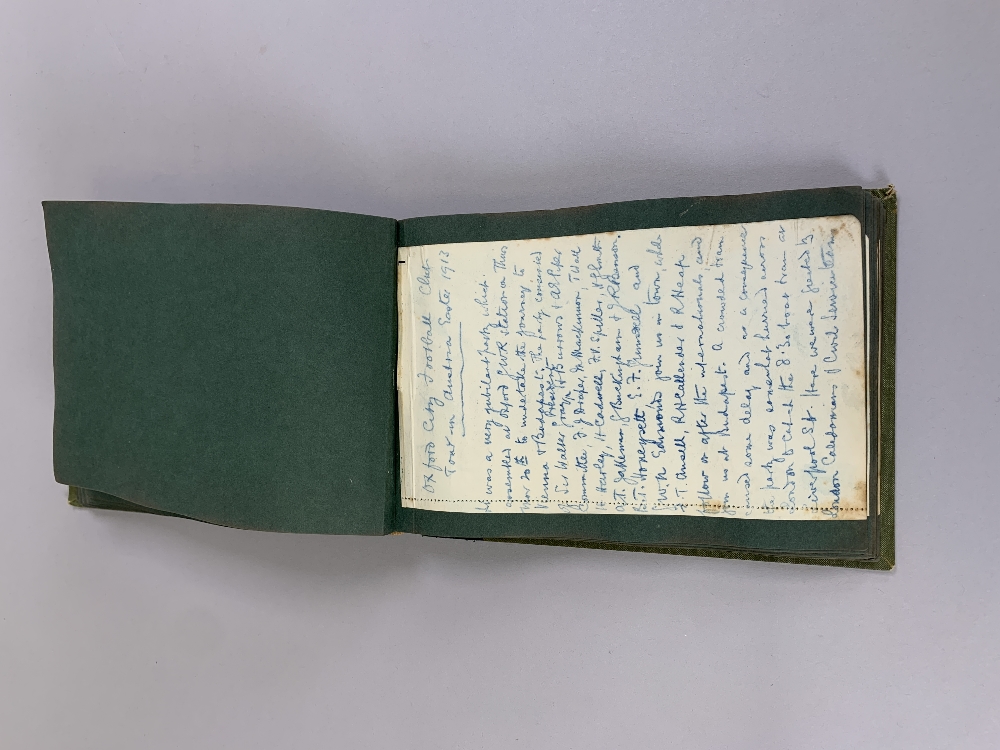 Oxford City Football Club
Tour in Austria Easter 1913
It was a very jubilant party which
assembled at Oxford GWR Station on Thurs
Mar 20th to undertake the journey to
Vienna & Budapest. The party consisted
of Sir Walter Gray President, H Burrows & A E Piper
Committee, F J Draper, D Mackinnon, T Hall
H Henley, H Cadwell, F H Speller,
A T Jakeman, G Buckingham & J R Benson.
Honeysett E. F. Grimsell and
W R Edmunds join us in town, while
T. Ansell, R H Callender & R Heap
follow on after the internationals, and
join us at Budapest. A crowded train
caused some delay, and as a consequence
the party was somewhat hurried across
London to catch the 8.30 boat train at
Liverpool St. Here we were greeted by
London Caledonians & Civil Service teams